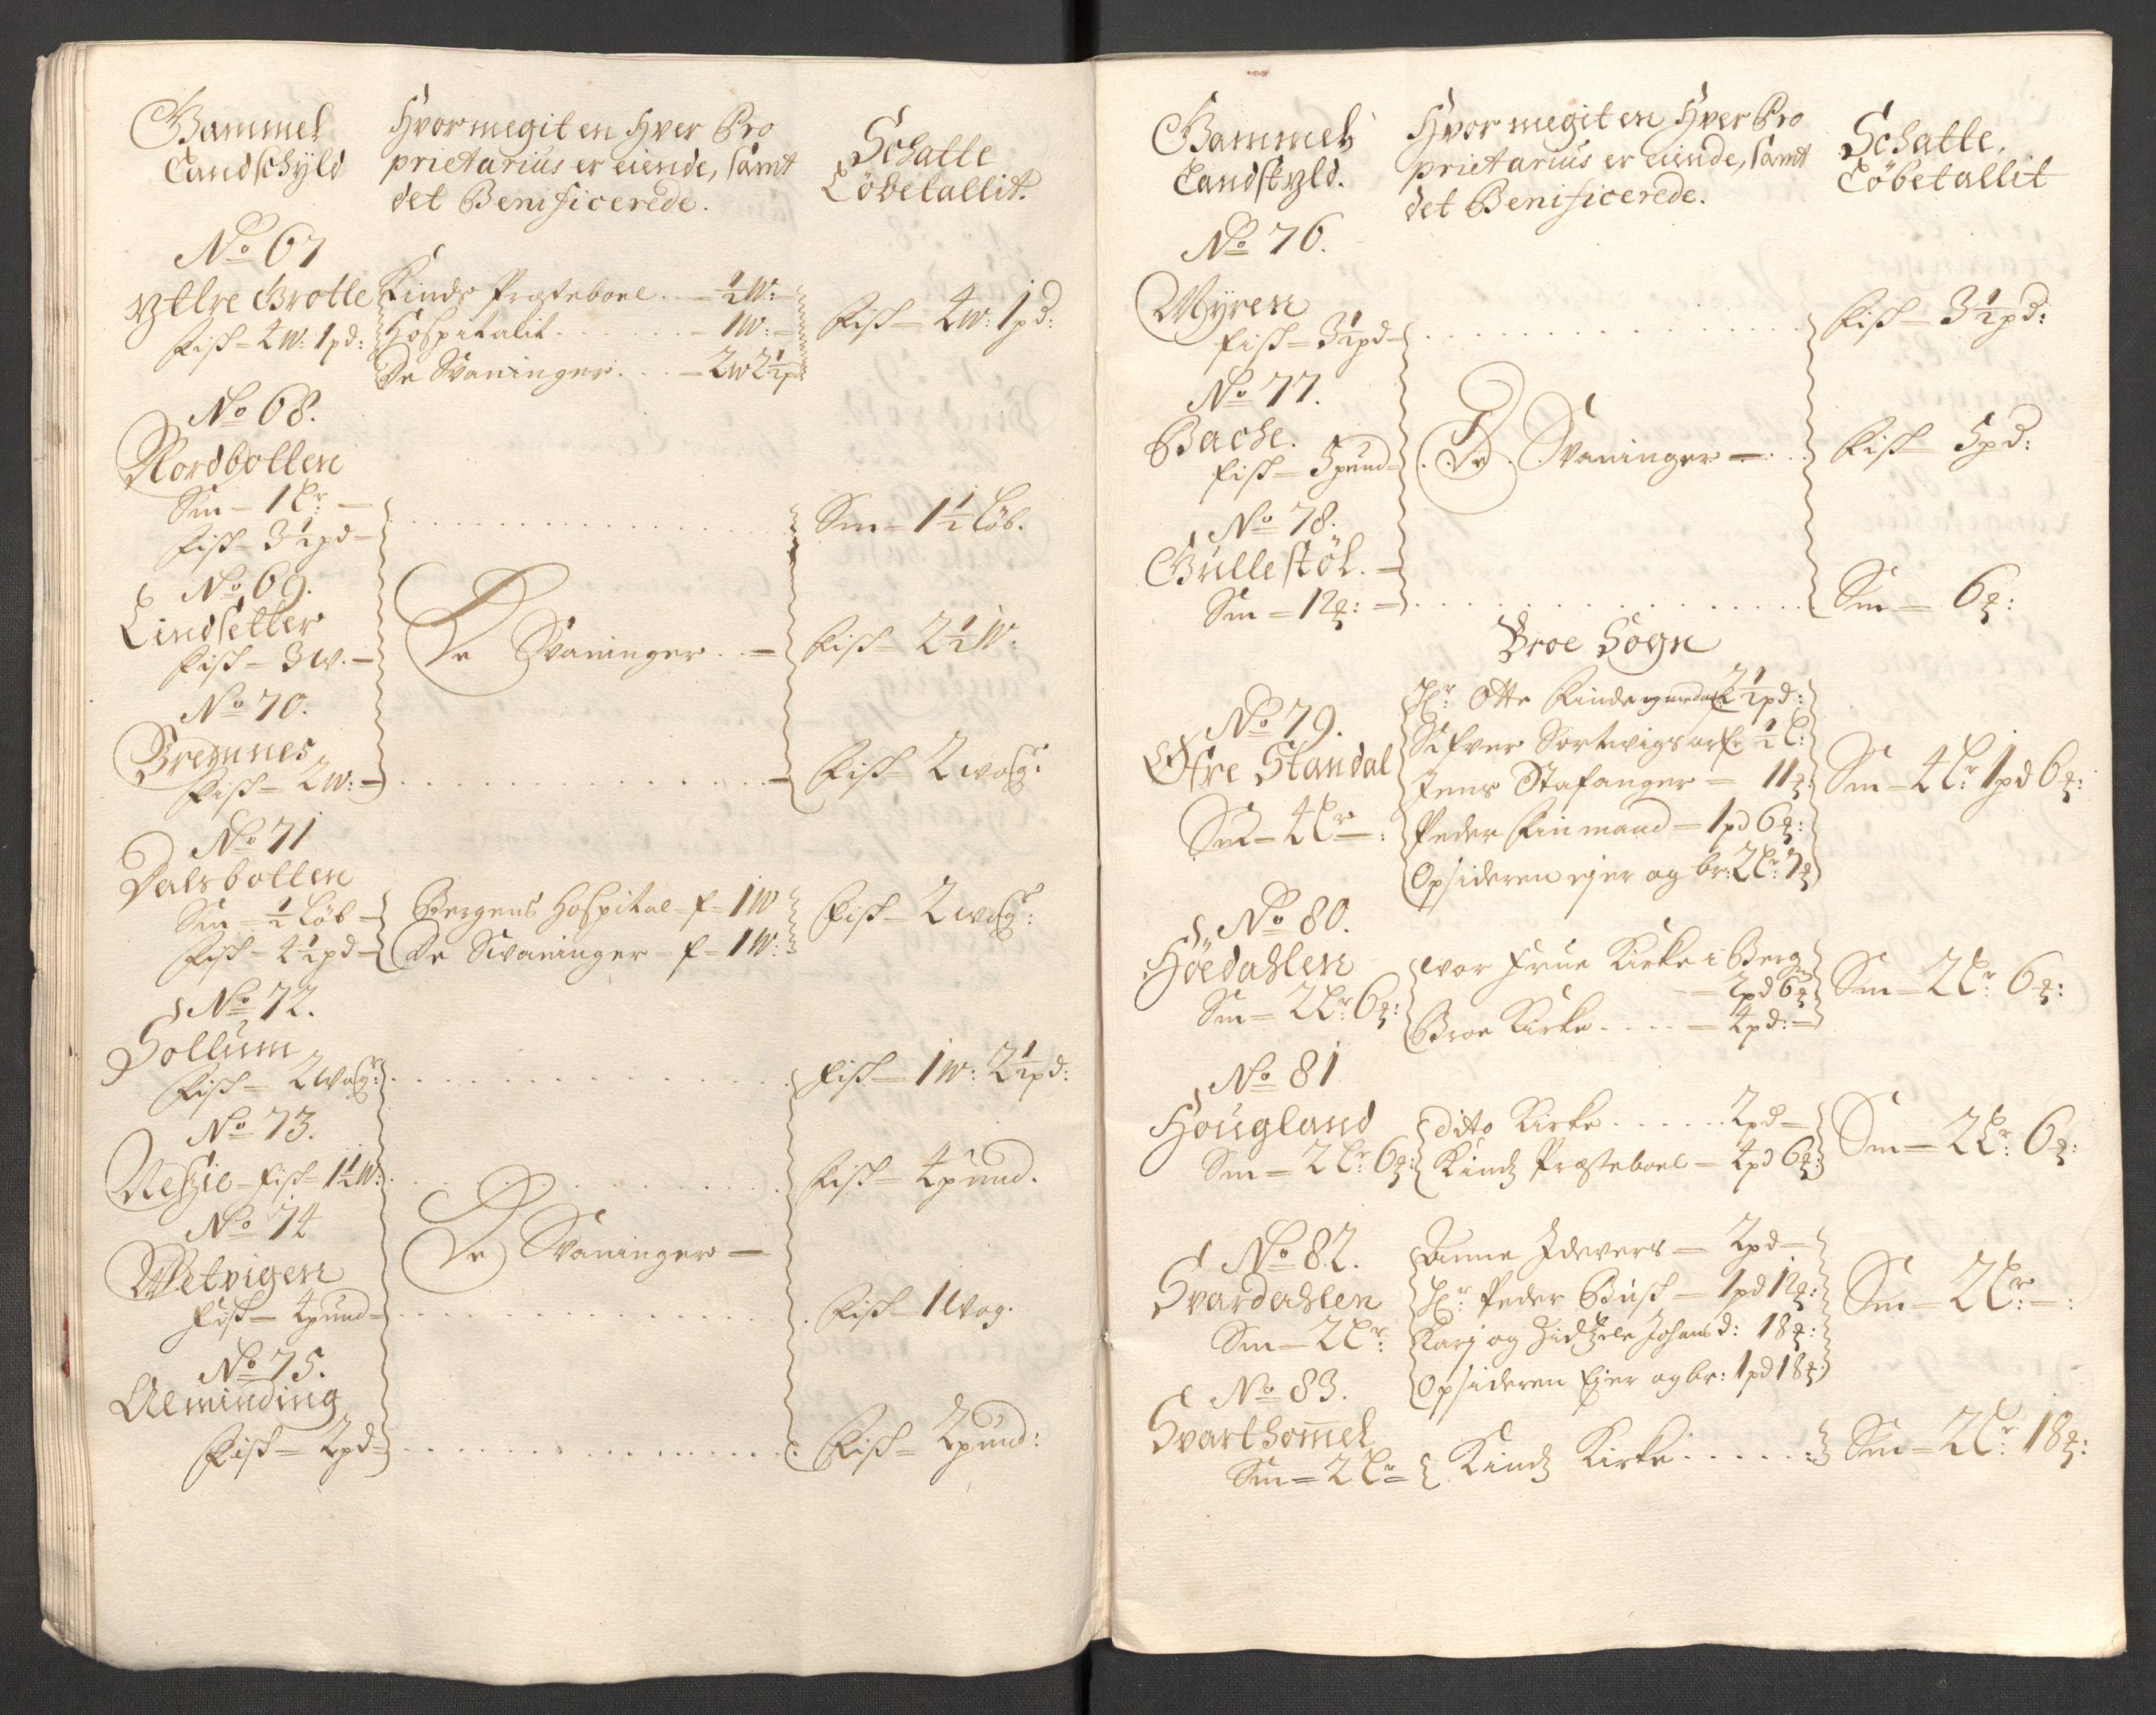 Gammel
Landschÿld
Hvormegit en Hver Pro
prietarius er eiende, samt
det Benificerede.
Schatte
Løbetallit.
No 67
Yttre Grotle
Fisk = 4 W: 1 pd:
Kinds Præsteboel . . = ½ W: =
Hospitalit . . . . . . . . = 1 W: =
De Svaninger . . . = 2 W 2½ pd
Fisk = 4 W: 1 pd:
No 68.
Nordbotten
Sm = 1 Lr: =
Fisk = 3½ pd =
Sm = 1½ Løb.
No 69.
Lindsetter
Fisk = 3 W. =
De Svaninger . . =
Fisk = 2½ W:
No 70.
Bremnes
Fisk = 2 W: =
Fisk = 2 Wog:
No 71
Dalsbotten
Sm = ½ Løb =
Fisk = 4½ pd =
Bergens Hospital = f = 1 W
De Svaninger = f = 1 W:
Fisk = 2 Wog:
No 72.
Sollum
Fisk = 2 Wog:
Fisk = 1 W: 2½ pd:
No 73.
Neszie = Fisk = 1½ W:
Fisk = 4 pund.
No 74
Wetvigen
Fisk = 4 pund =
De Svaninger =
Fisk = 1 Wog.
No 75.
Alminding
Fisk = 2 pd =
Fisk = 2 pund:
Gammel
Landskyld.
Hvor megit en Hver Pro
prietarius er eiende, samt
det Benificerede.
Schatte,
Løbetallit
No 76.
Myren
Fisk = 3½ pd =
Fisk = 3½ pd:
No 77.
Bache.
Fisk = 5 pund =
De Svaninger =
Fisk = 5 pd:
No 78.
Gullestøl. =
Sm = 12 ꝶ: =
Sm = 6 ꝶ:
Broe Sogn
No 79.
Øfre Standal
Sm = 4 Lr = :
Hr: Otte Finde 2½ pd:
Sifver Sortwigs arf: ½ L:
Jens Stafanger = 11 ꝶ:
Peder Finmand = 1 pd 6 ꝶ:
Opsideren ejer og br: 2 Lr: 7 ꝶ
Sm = 4 Lr: 1 pd 6 ꝶ:
No 80.
Høedahlen
Sm = 2 Lr: 6 ꝶ:
Vor Frue Kirke i Berg
= 2 pd 6 ꝶ
Broe Kirke . . . . = 4 pd: =
Sm = 2 Lr: 6 ꝶ:
No 81
Hougland
Sm = 2 Lr: 6 ꝶ:
Dito Kirke . . . . . . 2 pd =
Kindz Præsteboel = 4 pd 6 ꝶ:
Sm = 2 Lr: 6 ꝶ:
No 82.
Svardahlen
Sm = 2 Lr:
Anne Idevers = 2 pd =
Hr: Peder Busk = 1 pd 12 ꝶ:
Karj og Johansd: 18 ꝶ:
Opsideren Ejer og br: 1 pd 18 ꝶ:
Sm = 2 Lr: = :
No 83.
Svarthom̄el
Sm = 2 Lr =
Kindz Kirke . . . . . :
Sm = 2 Lr: 18 ꝶ: